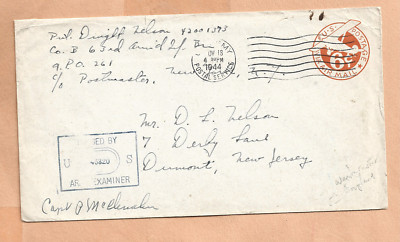 Pvt. Dwight Nelson 42001373
Co. B 63rd Arm'd Inf. Bn.
A.P.O. 261
c/o Postmaster, New N.Y.
18
PM
1944
POSTAL SERVICE
U.S. POSTAGE
6¢
VIA AIR MAIL
Mr. D. L. Nelson
7 Derby Lane
Dumont, New Jersey
ED BY
U S
ARMY EXAMINER
Capt